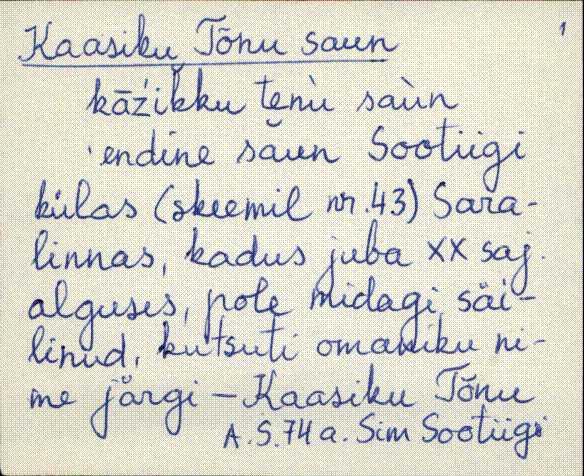 1
Kaasiku Tõnu saun
kāźikku tenù saùn
endine saun Sootiigi
külas (skeemil nr.43) Sara-
linnas, kadus juba XX saj.
alguses, pole midagi säi-
linud, kutsuti omaniku ni-
me järgi - Kaasiku Tõnu
A.S. 74 a. Sim Sootiigi